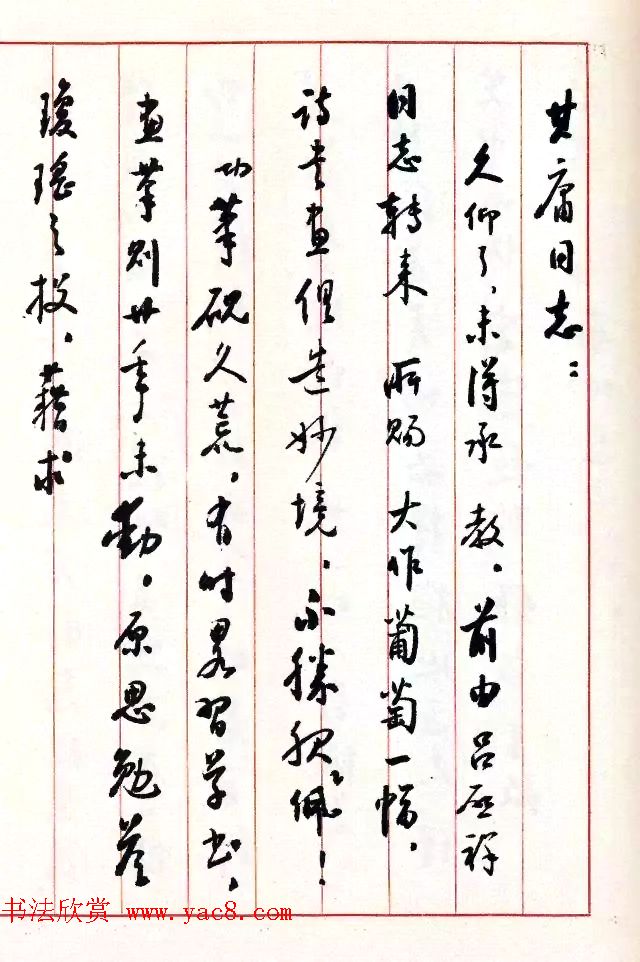 其庸同志：
久仰了，未得承 教。前由吕启祥
同志转来 所赐 大作葡萄一幅，
诗书画俱造妙境，不胜钦佩！
功笔砚久荒，有时略习学书，
画笔则廿年未动，原思勉答
琼瑶之投，藉求
书法欣赏 www.yac8.com